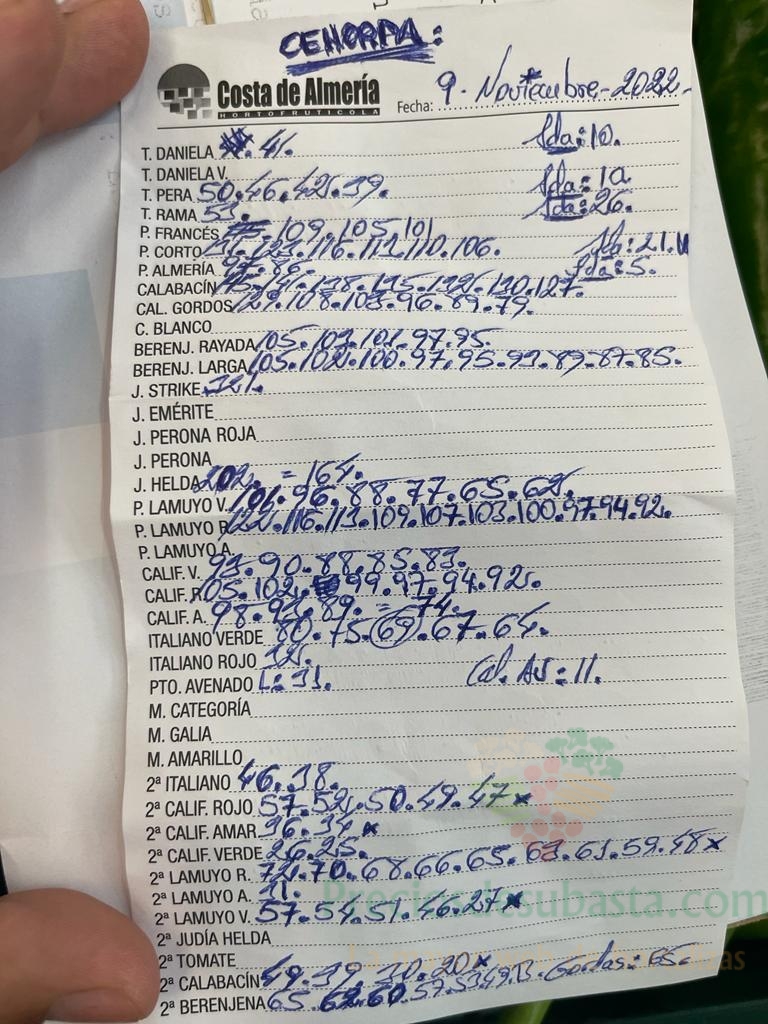 CEHORPA:
Costa de Almería
HORTOFRUTICOLA
Fecha: 9. Noviembre-2022-
T. DANIELA 41.
2da: 10.
T. DANIELA V.
T. PERA 50.46.42.39.
2da: 10
T. RAMA 53.
2da: 26.
P. FRANCÉS 109.105.101
P. CORTO 123.116.111.110.106.
21.
P. ALMERÍA 86.
2da: 5.
CALABACÍN 138.135.132.130.127.
CAL. GORDOS 129.108.103.96.89.79.
C. BLANCO
BERENJ. RAYADA 105.103.101.97.95.
BERENJ. LARGA 105.102.100.97.95.93.89.87.85.
J. STRIKE 321.
J. EMÉRITE
J. PERONA ROJA
J. PERONA
J. HELDA 202. = 164.
P. LAMUYO V. 101.96.88.77.65.62.
P. LAMUYO R. 122.116.113.109.107.103.100.97.94.92.
P. LAMUYO A.
CALIF. V. 93.90.88.85.83.
CALIF. R. 105.102. 99.97.94.92.
CALIF. A. 98.93.89. = 74.
ITALIANO VERDE 80.75.69.67.64.
ITALIANO ROJO 32.
PTO. AVENADO L: 31.
Cal. AV: 11.
M. CATEGORÍA
M. GALIA
M. AMARILLO
2ª ITALIANO 46.38.
2ª CALIF. ROJO 57.52.50.49.47x
2ª CALIF. AMAR. 36.34x
2ª CALIF. VERDE 26.25.
2ª LAMUYO R. 72.70.68.66.65.63.61.59.48x
2ª LAMUYO A. 31.
2ª LAMUYO V. 57.54.51.46.27x
Preciosdesubasta.com
2ª JUDÍA HELDA
2ª TOMATE
2ª CALABACÍN 49.39.30.20x
Gordas: 65.
2ª BERENJENA 65.62.60.57.53.49.